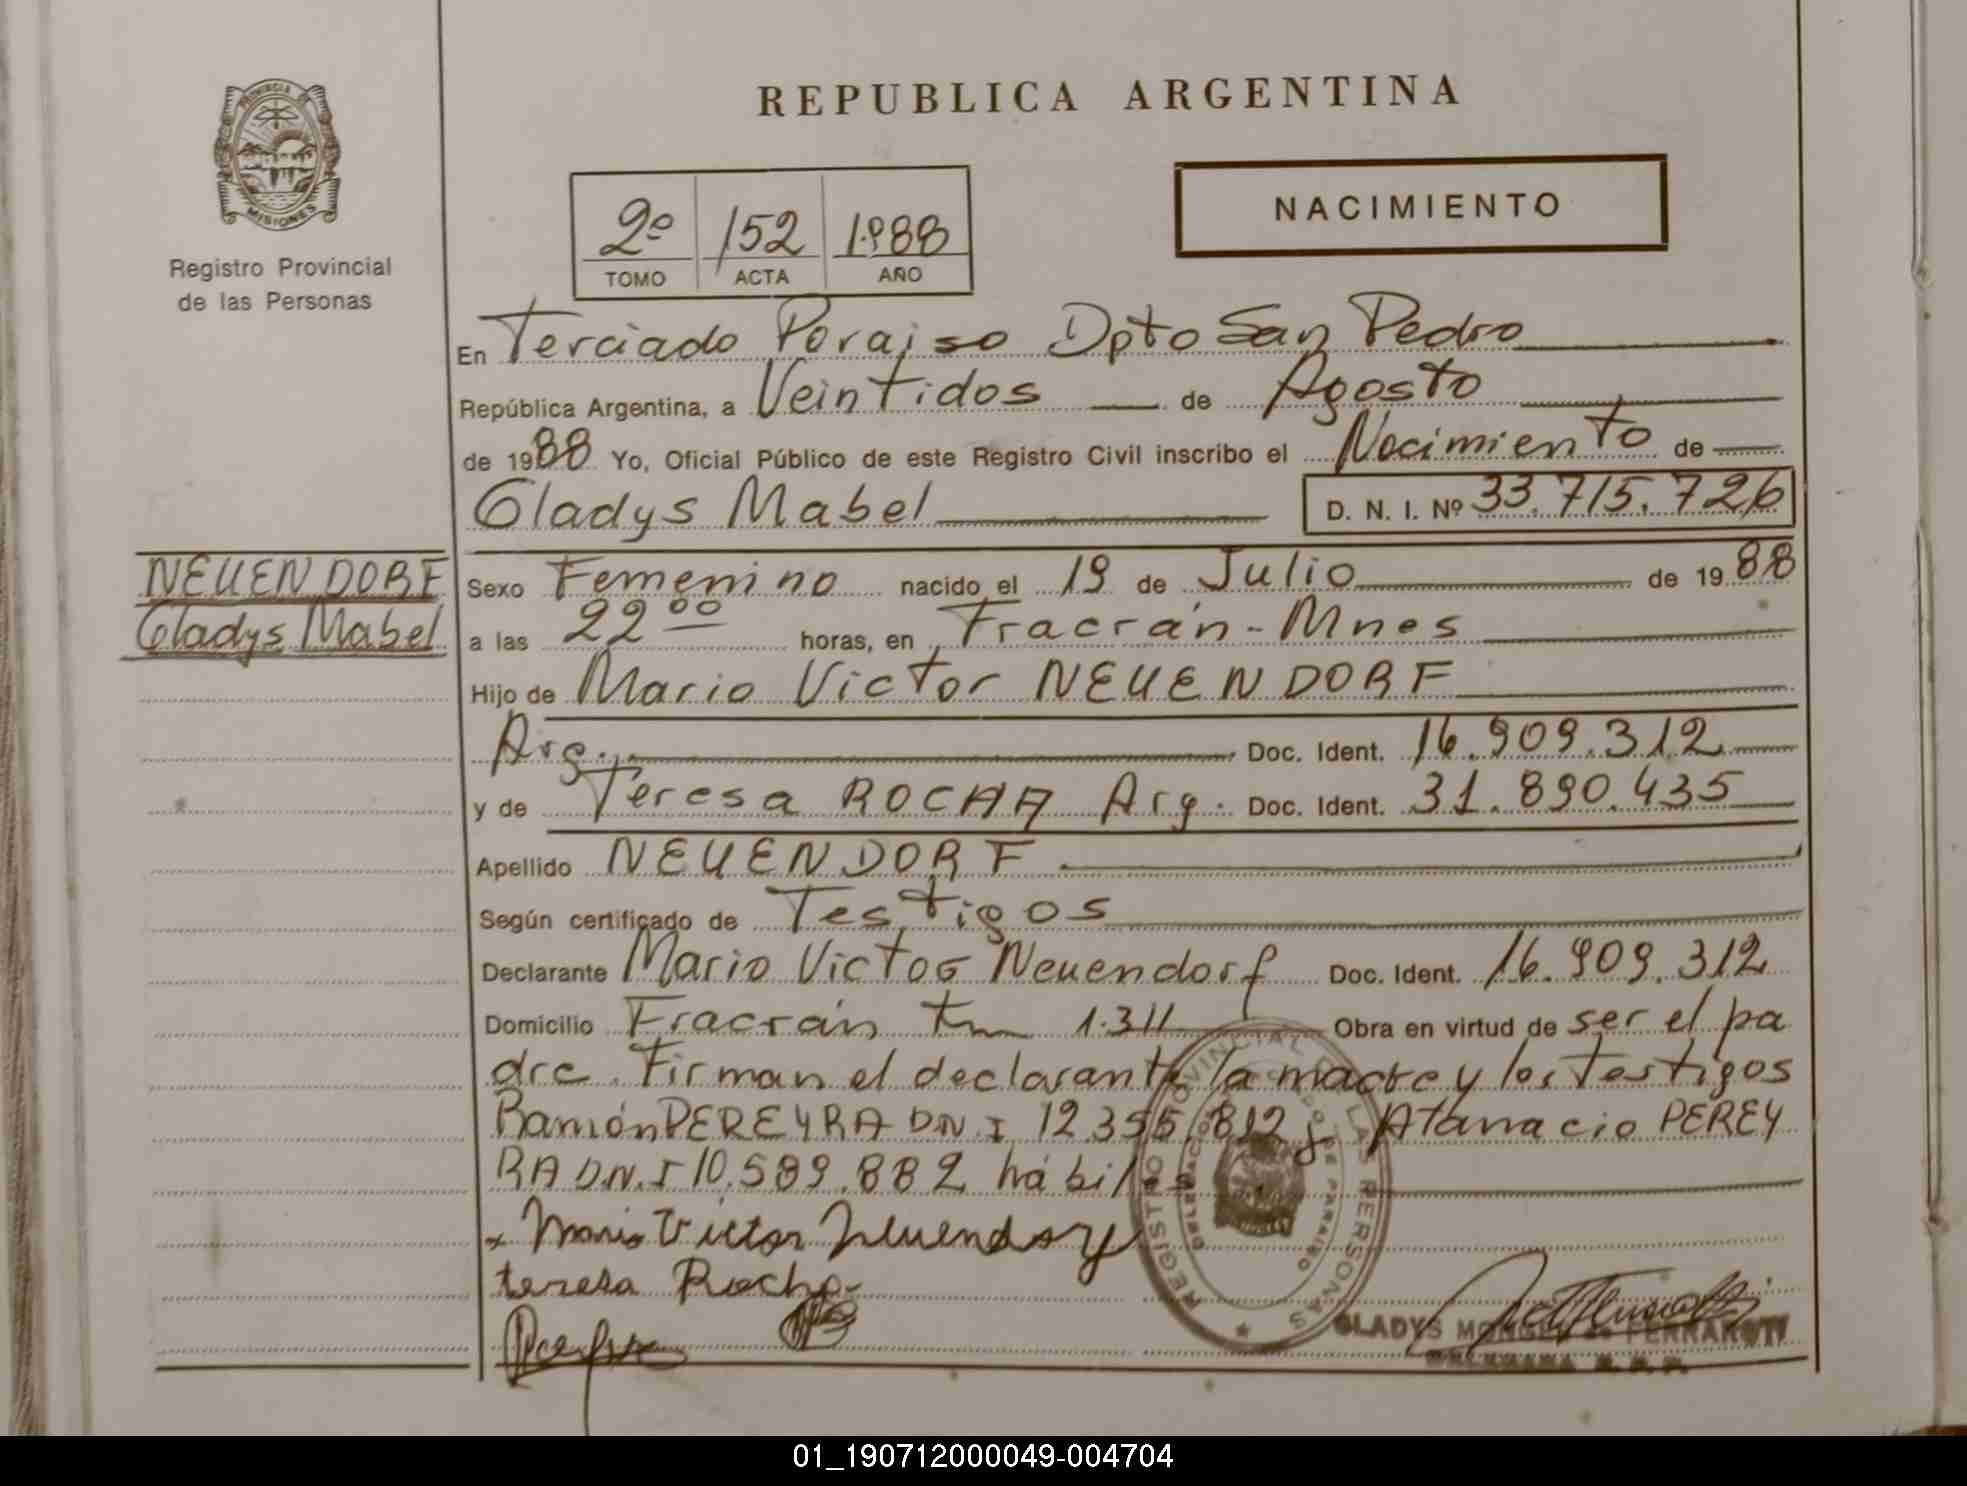 REPUBLICA ARGENTINA
PROVINCIA DE
MISIONES
Registro Provincial
de las Personas
2º 152 1.988
TOMO ACTA AÑO
NACIMIENTO
En Terciado Paraiso Dpto San Pedro
República Argentina, a Veintidos de Agosto
de 1988 Yo, Oficial Público de este Registro Civil inscribo el Nacimiento de
Gladys Mabel D. N. I. Nº 33.715.726
NEUENDORF
Gladys Mabel
Sexo Femenino nacido el 19 de Julio de 1988
a las 22 00 horas, en Fracrán - Mnes
Hijo de Mario Victor NEUENDORF
Arg. Doc. Ident. 16.909.312
y de Teresa ROCHA Arg. Doc. Ident. 31.890.435
Apellido NEUENDORF
Según certificado de Testigos
Declarante Mario Victor Neuendorf Doc. Ident. 16.909.312
Domicilio Fracrán Km 1.311 Obra en virtud de ser el pa
dre. Firman el declarante la madre y los Testigos
Ramón PEREYRA DN.I 12.355.812 y Atanacio PEREY
RA D.N.I 10.589.882 hábiles
x Mario Victor Neuendorf
teresa Rocha
REGISTRO PROVINCIAL DE LAS PERSONAS
DELEGACION TERCIADO DE PARAISO
GLADYS DE FERRAROTTI
01_190712000049-004704